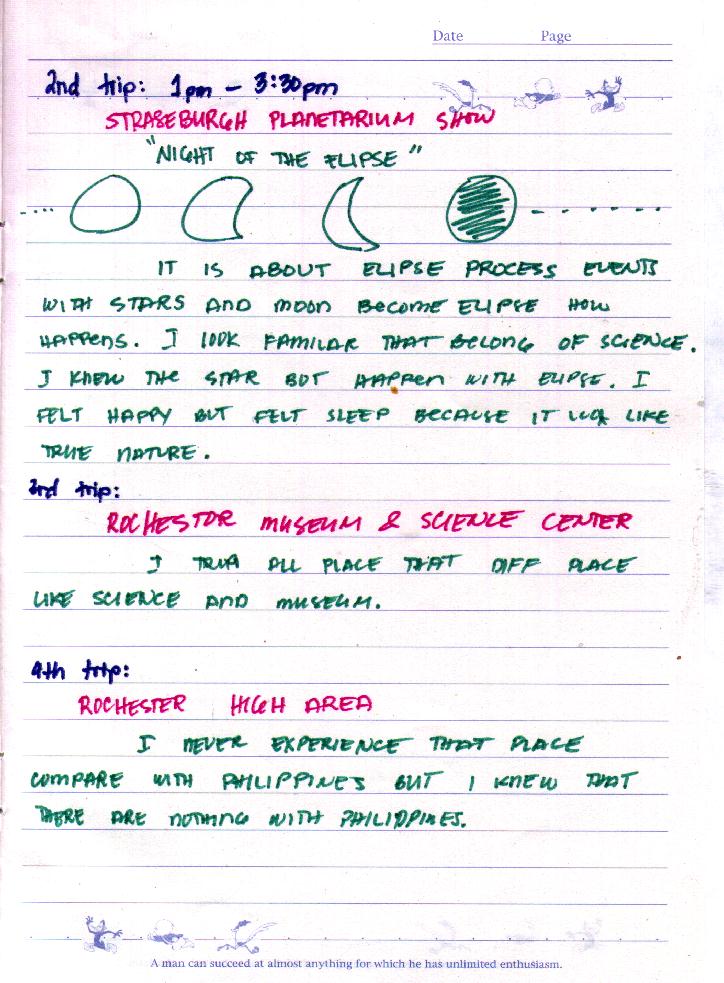 Date Page
2nd trip: 1pm - 3:30pm
STRASEBURGH PLANETARIUM SHOW
"NIGHT OF THE ELIPSE"
IT IS ABOUT ELIPSE PROCESS EVENTS
WITH STARS AND MOON BECOME ELIPSE HOW
HAPPENS. I LOOK FAMILAR THAT BELONG OF SCIENCE.
I KNEW THE STAR BUT HAPPEN WITH ELIPSE. I
FELT HAPPY BUT FELT SLEEP BECAUSE IT LOOK LIKE
TRUE NATURE.
3rd trip:
ROCHESTOR MUSEUM & SCIENCE CENTER
I ALL PLACE THAT DIFF PLACE
LIKE SCIENCE AND MUSEUM.
4th trip:
ROCHESTER HIGH AREA
I NEVER EXPERIENCE THAT PLACE
COMPARE WITH PHILIPPINES BUT I KNEW THAT
THERE ARE NOTHING WITH PHILIPPINES.
A man can succeed at almost anything for which he has unlimited enthusiasm.